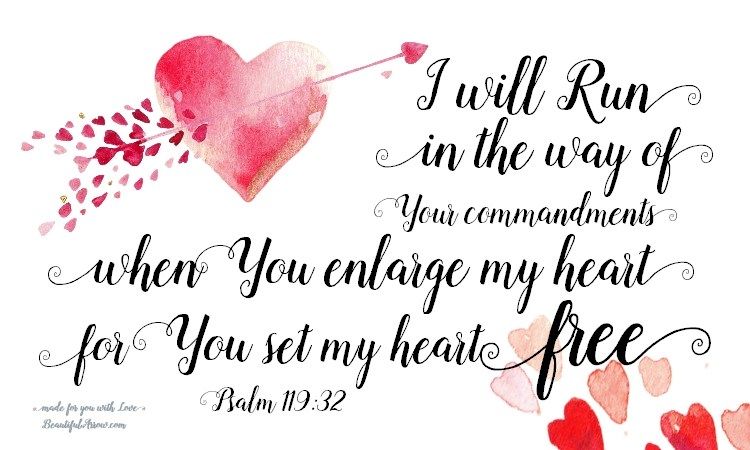 I will Run
in the way of
Your commandments
when You enlarge my heart
for You set my heart free
Psalm 119:32
made for you with Love
BeautifulArrow.com